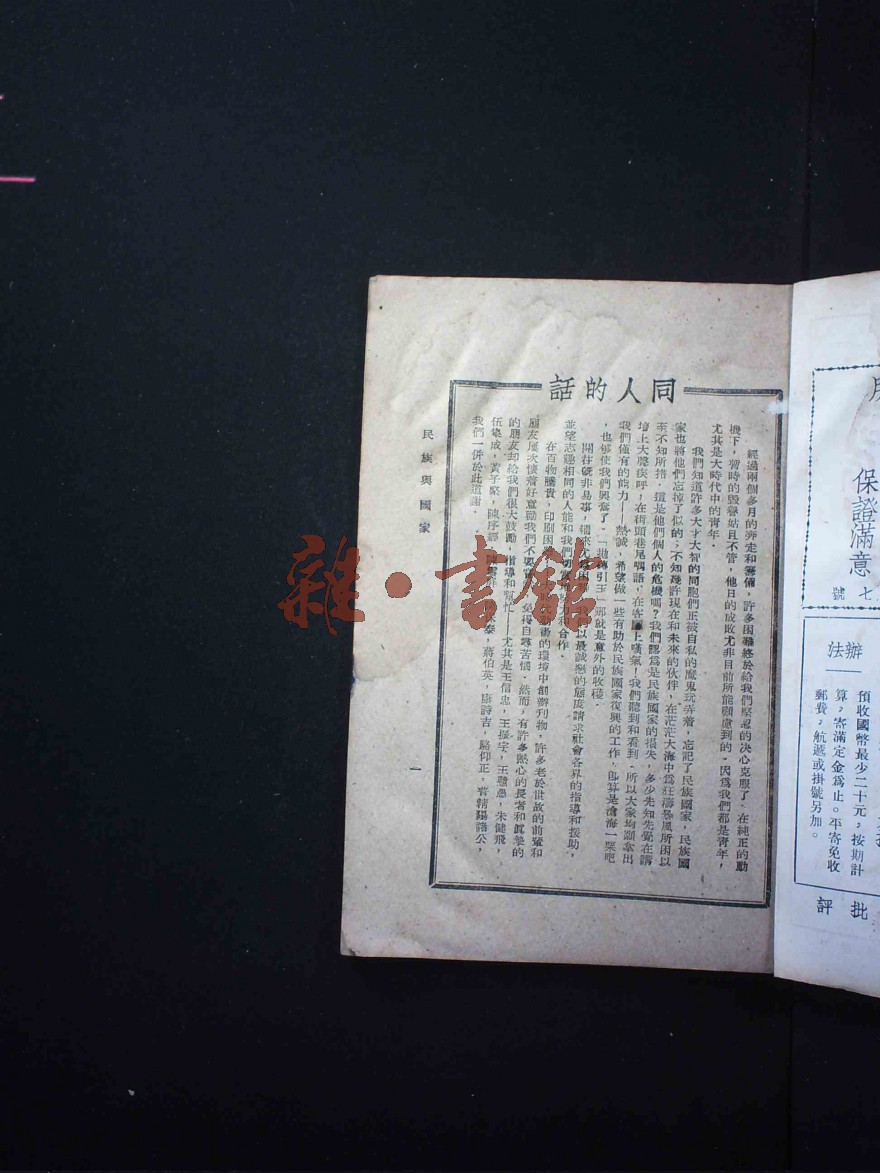 同人的話
經過兩個多月的奔走和籌備，許多困難終於給我們堅忍的決心克服了．在純正的動
機下，暫時的毀譽姑且不管，他日的成敗尤非目前所能顧慮到的．因爲我們都是青年，
尤其是大時代中的青年．
我們知道許多大才大智的同胞們正被自私的魔鬼玩弄着，忘記了民族國家，民族國
家也將他們忘掉了似的；不知幾許現在和未來的伙伴，在茫茫大海中爲狂濤暴風所困以
至不知所措，這是他們個人的危機嗎？我們認爲是民族國家的損失，多少先知先覺在講
壇上大聲疾呼，在街頭巷尾喁語，在客圖上嘆氣！我們聽到和看到．所以大家均願拿出
我們僅有的能力——熱誠，希望做一些有助於民族國家復興的工作，即算是滄海一粟吧
，也够使我們興奮了．「拋磚引玉」那就是意外的收穫．
開荒旣非易事，備來
以最誠懇的態度請求社會各界的指導和援助，
並望志趣相同的人能和我們切實
力和合作．
在百物騰貴，印刷困
的環境中創辦刊物，許多老於世故的前輩和
朋友屢次懷着好意勸我們不要
免得自尋苦惱．然而，有許多熱心的長者和眞摯的
的朋友却給我們很大鼓勵，指導和幫忙——尤其是王信忠，王振宇，王贛愚，朱健飛，
伍集成，黃子堅，陳序經，陳雪屏，
蔣伯英，唐詩吉，駱仰正，曹精陽諸公，
我們一併於此道謝．
民族與國家
一
保證滿意
七號
辦法
預收國幣最少二十元，按期計
算，寄滿定金爲止。平寄免收
郵費，航遞或掛號另加。
批評
雜·書館